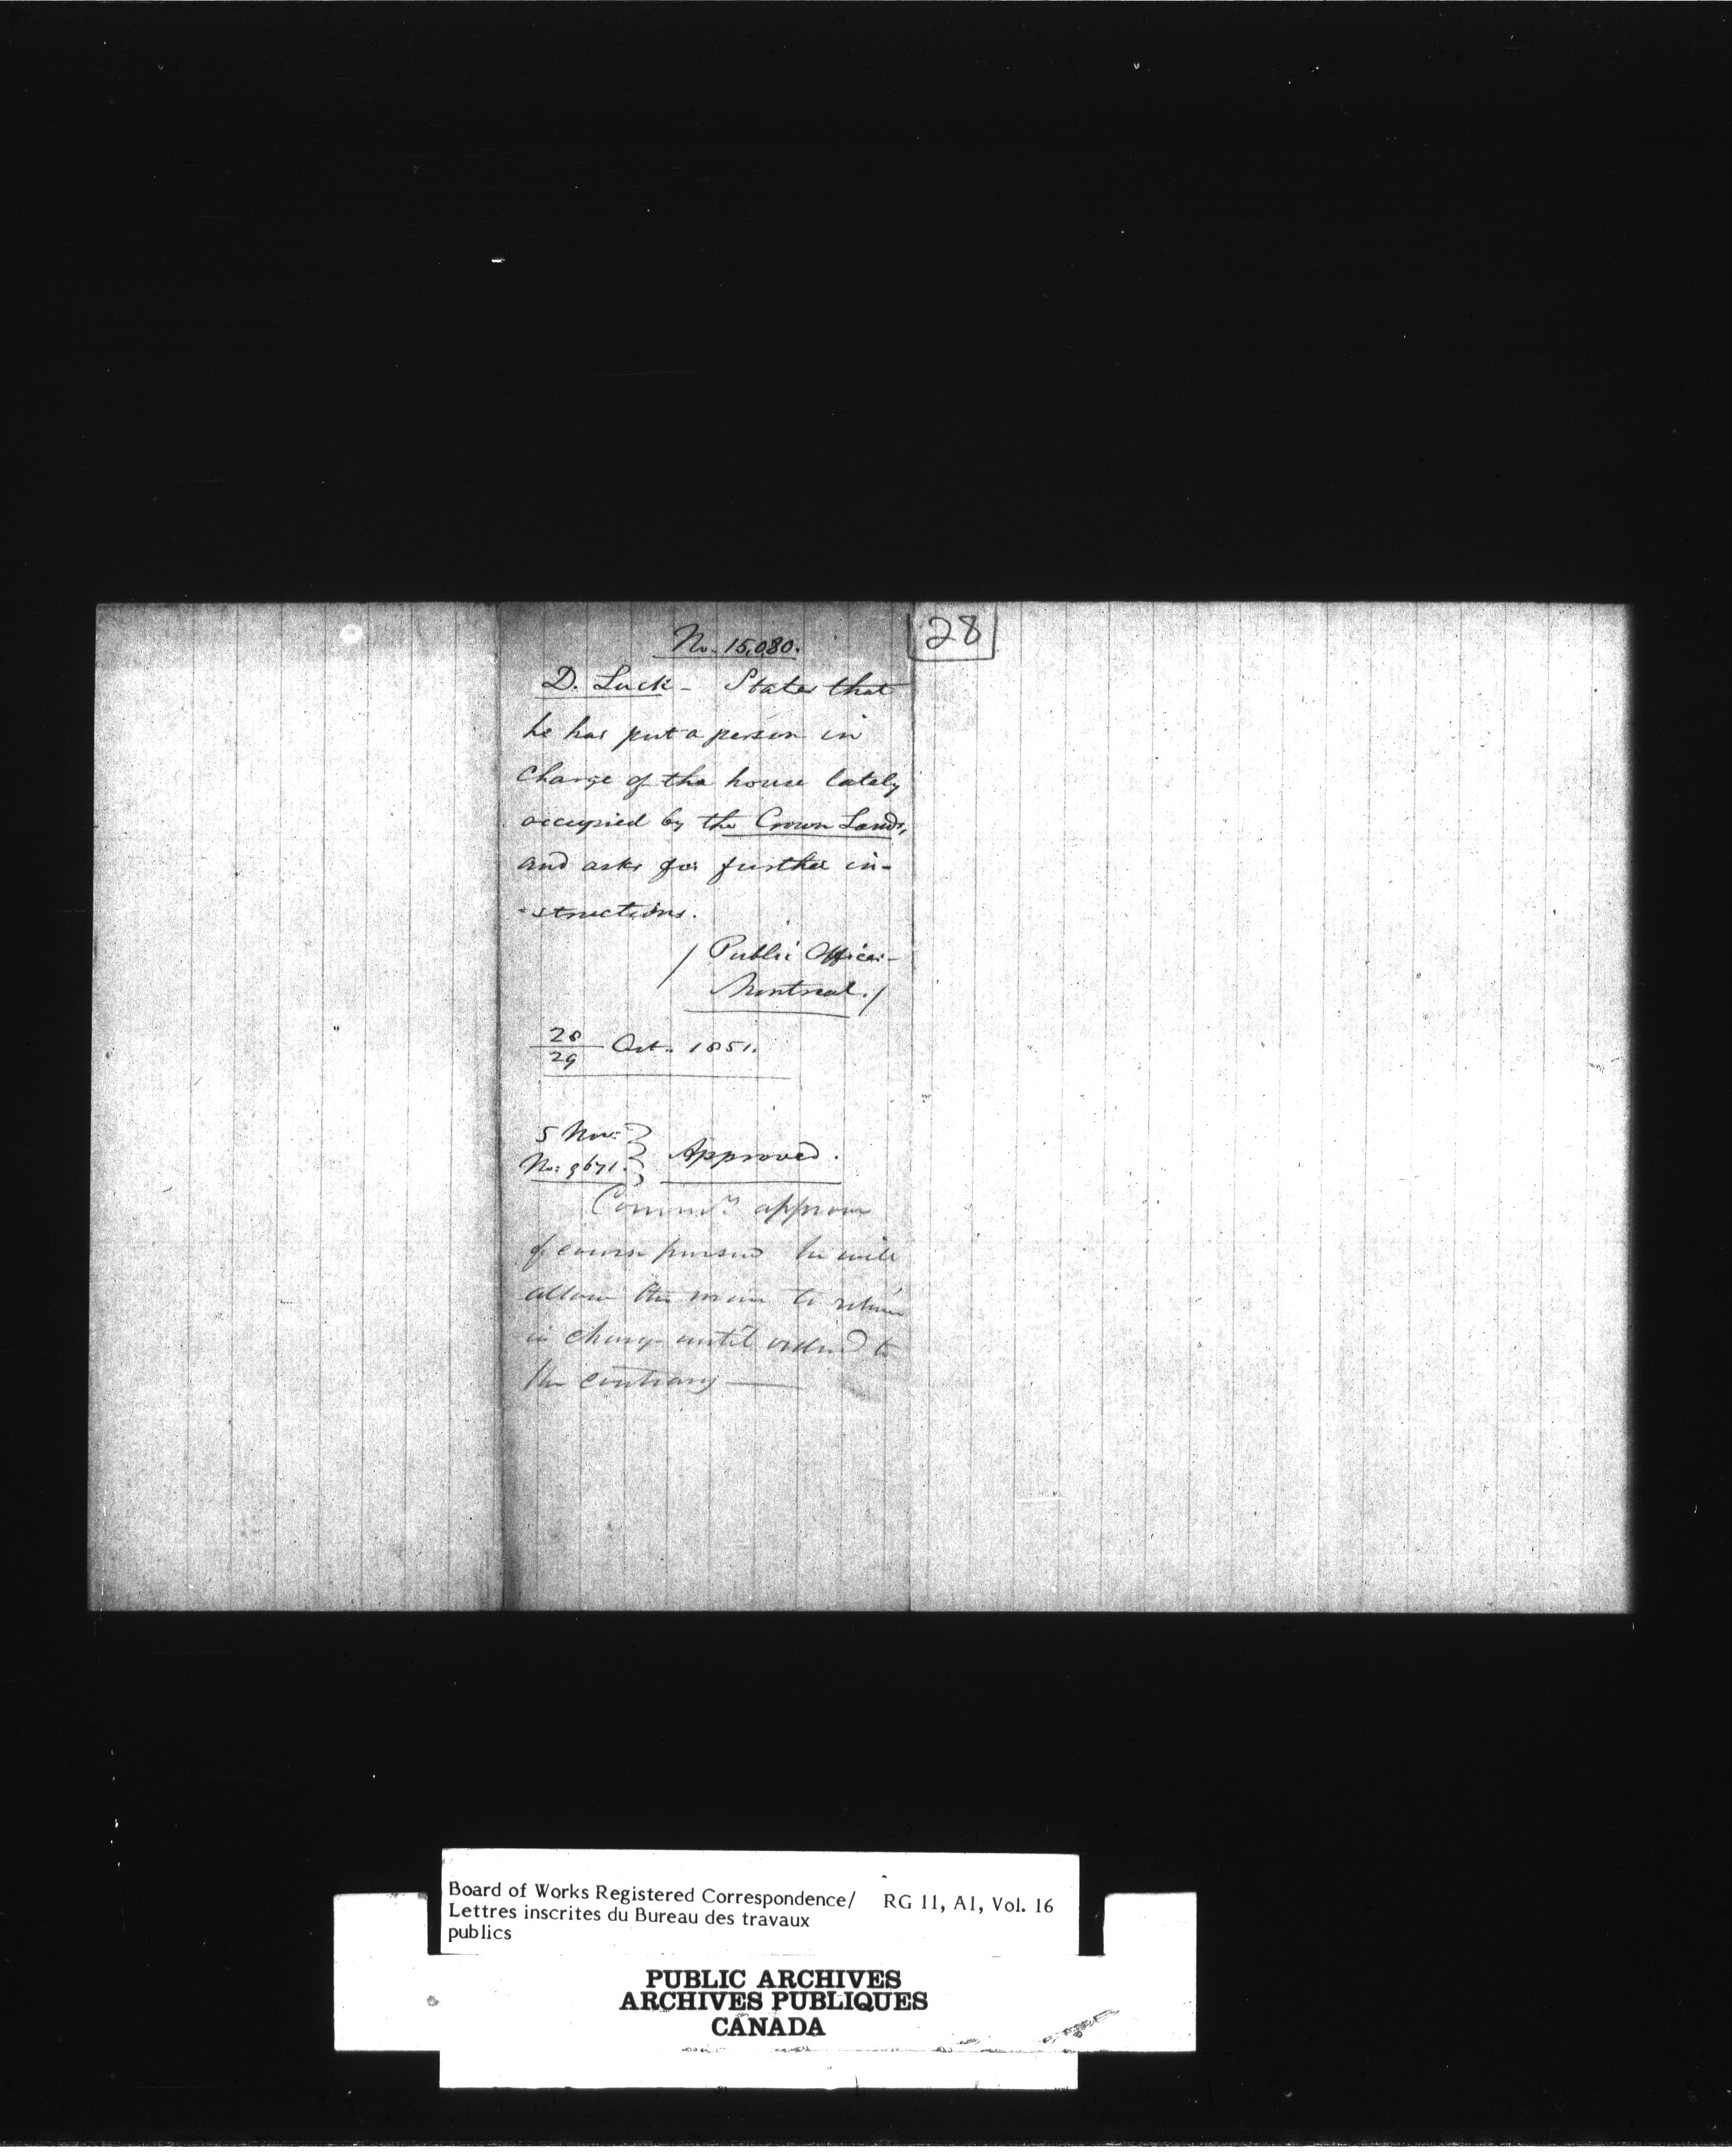 28
No. 15,080.
D. Luck - States that
he has put a person in
charge of the house lately
occupied by the Crown Lands,
and asks for further in-
-structions.
/ Public Offices -
Montreal. /
28/29 Oct. 1851.
5 Nov:
No: 9671. } Approved.
Commrs approve
of course pursued he will
allow the man to remain
in charge until ordered to
the contrary —
Board of Works Registered Correspondence/ RG 11, A1, Vol. 16
Lettres inscrites du Bureau des travaux
publics
PUBLIC ARCHIVES
ARCHIVES PUBLIQUES
CANADA